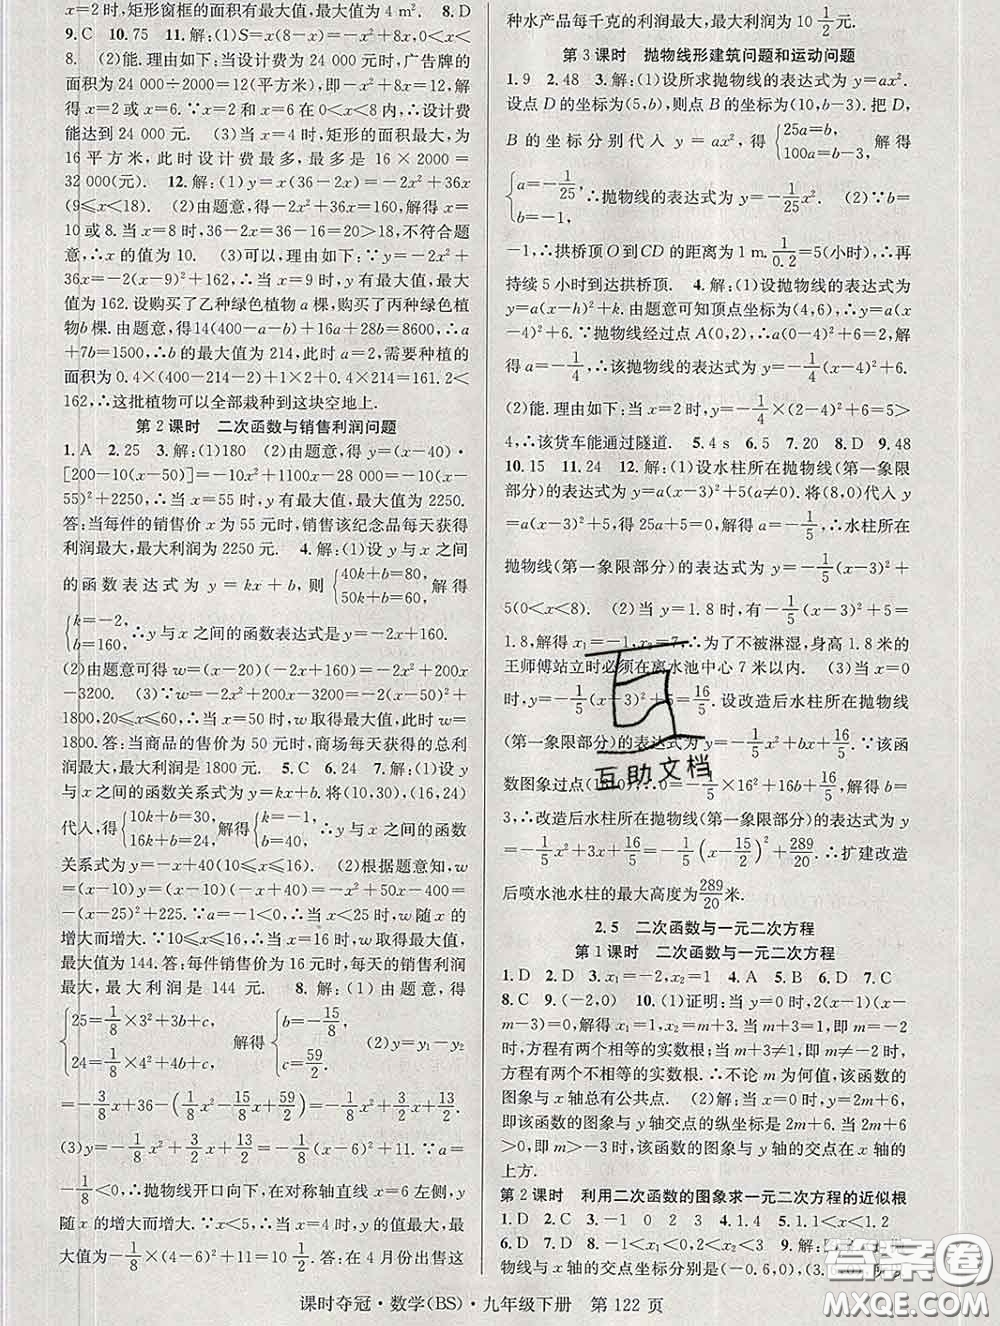 x=2时,矩形窗框的面积有最大值,最大值为4 m². 8. D
9. C 10. 75 11. 解:(1)S=x(8-x)=-x²+8x,0<x<
8. (2)能. 理由如下:当设计费为24 000元时,广告牌的
面积为24 000÷2000=12(平方米),即-x²+8x=12,解
得x=2或x=6. ∵x=2和x=6在0<x<8内,∴设计费
能达到24 000元. (3)当x=4时,矩形的面积最大,为
16平方米,此时设计费最多,最多是16×2000=
32 000(元). 12. 解:(1)y=x(36-2x)=-2x²+36x
(9≤x<18). (2)由题意,得-2x²+36x=160,解得x=
10或8. 当x=8时,36-2x=36-16=20>18,不符合题
意,∴x的值为10. (3)可以,理由如下:∵y=-2x²+
36x=-2(x-9)²+162,∴当x=9时,y有最大值,最大
值为162. 设购买了乙种绿色植物a棵,购买了丙种绿色植
物b棵. 由题意,得14(400-a-b)+16a+28b=8600,∴a
+7b=1500,∴b的最大值为214,此时a=2,需要种植的
面积为0.4×(400-214-2)+1×2+0.4×214=161.2<
162,∴这批植物可以全部栽种到这块空地上.
第2课时 二次函数与销售利润问题
1. A 2. 25 3. 解:(1)180 (2)由题意,得y=(x-40)·
[200-10(x-50)]=-10x²+1100x-28 000=-10(x-
55)²+2250,∴当x=55时,y有最大值,最大值为2250.
答:当每件的销售价x为55元时,销售该纪念品每天获得
利润最大,最大利润为2250元. 4. 解:(1)设y与x之间
的函数表达式为y=kx+b,则{40k+b=80, 50k+b=60, 解得
{k=-2, b=160, ∴y与x之间的函数表达式是y=-2x+160.
(2)由题意可得w=(x-20)(-2x+160)=-2x²+200x
-3200. (3)∵w=-2x²+200x-3200=-2(x-50)²+
1800,20≤x≤60,∴当x=50时,w取得最大值,此时w=
1800. 答:当商品的售价为50元时,商场每天获得的总利
润最大,最大利润是1800元. 5. C 6. 24 7. 解:(1)设y
与x之间的函数关系式为y=kx+b. 将(10,30),(16,24)
代入,得{10k+b=30, 16k+b=24, 解得{k=-1, b=40. ∴y与x之间的函数
关系式为y=-x+40(10≤x≤16). (2)根据题意知,w=
(x-10)y=(x-10)(-x+40)=-x²+50x-400=
-(x-25)²+225. ∵a=-1<0,∴当x<25时,w随x的
增大而增大. ∵10≤x≤16,∴当x=16时,w取得最大值,最
大值为144. 答:每件销售价为16元时,每天的销售利润最
大,最大利润是144元. 8. 解:(1)由题意,得
{25=1/8×3²+3b+c, 24=1/8×4²+4b+c, 解得{b=-15/8, c=59/2. (2)y=y₁-y₂
=-3/8x+36-(1/8x²-15/8x+59/2)=-1/8x²+3/2x+13/2.
(3)y=-1/8x²+3/2x+13/2=-1/8(x-6)²+11. ∵a=
-1/8<0,∴抛物线开口向下,在对称轴直线x=6左侧,y
随x的增大而增大. ∵x<5,∴当x=4时,y有最大值,最
大值为-1/8×(4-6)²+11=10 1/2. 答:在4月份出售这
种水产品每千克的利润最大,最大利润为10 1/2元.
第3课时 抛物线形建筑问题和运动问题
1. 9 2. 48 3. 解:(1)设所求抛物线的表达式为y=ax².
设点D的坐标为(5,b),则点B的坐标为(10,b-3). 把D,
B的坐标分别代入y=ax²,得{25a=b, 100a=b-3,
{a=-1/25, b=-1, ∴抛物线的表达式为y=-1/25x². (2)∵b=
-1,∴拱桥顶O到CD的距离为1 m. 1/0.2=5(小时),∴再
持续5小时到达拱桥顶. 4. 解:(1)设抛物线的表达式为
y=a(x-h)²+k. 由题意可知顶点坐标为(4,6),∴y=a(x
-4)²+6. ∵抛物线经过点A(0,2),∴a(0-4)²+6=2,解
得a=-1/4,∴该抛物线的表达式为y=-1/4(x-4)²+6.
(2)能. 理由如下:当x=2时,y=-1/4×(2-4)²+6=5>
4,∴该货车能通过隧道. 5. 4 s 6. 5 7. 20 8. D 9. 48
10. 15 11. 24 12. 解:(1)设水柱所在抛物线(第一象限
部分)的表达式为y=a(x-3)²+5(a≠0). 将(8,0)代入y
=a(x-3)²+5,得25a+5=0,解得a=-1/5,∴水柱所在
抛物线(第一象限部分)的表达式为y=-1/5(x-3)²+
5(0<x<8). (2)当y=1.8时,有-1/5(x-3)²+5=
1.8,解得x₁=-1,x₂=7,∴为了不被淋湿,身高1.8米的
王师傅站立时必须在离水池中心7米以内. (3)当x=0
时,y=-1/5(x-3)²+5=16/5. 设改造后水柱所在抛物线
(第一象限部分)的表达式为y=-1/5x²+bx+16/5. ∵该函
数图象过点(16,0),∴0=-1/5×16²+16b+16/5,解得b=
3,∴改造后水柱所在抛物线(第一象限部分)的表达式为y
=-1/5x²+3x+16/5=-1/5(x-15/2)²+289/20,∴扩建改造
后喷水池水柱的最大高度为289/20米.
2.5 二次函数与一元二次方程
第1课时 二次函数与一元二次方程
1. D 2. D 3. x₁=-2,x₂=1 4. A 5. B 6. D 7. C
8. C 9. (-2,0) 10. (1)证明:当y=0时,2(x-1)(x-
m-3)=0,解得x₁=1,x₂=m+3. 当m+3=1,即m=-2
时,方程有两个相等的实数根;当m+3≠1,即m≠-2时,
方程有两个不相等的实数根. ∴不论m为何值,该函数的
图象与x轴总有公共点. (2)解:当x=0时,y=2m+6,
即该函数的图象与y轴交点的纵坐标是2m+6. 当2m+6
>0,即m>-3时,该函数的图象与y轴的交点在x轴的
上方.
第2课时 利用二次函数的图象求一元二次方程的近似根
1. D 2. C 3. -1 0 2 3 4. 1.4 5. 1.1<x<1.2
6. D 7. D 8. -1<x₁<0,2<x₂<3 9. 解:
物线与x轴的交点坐标分别是(-0.6,0),
互助文档
答案圈
MXQE.COM
课时夺冠·数学(BS)·九年级下册 第122页